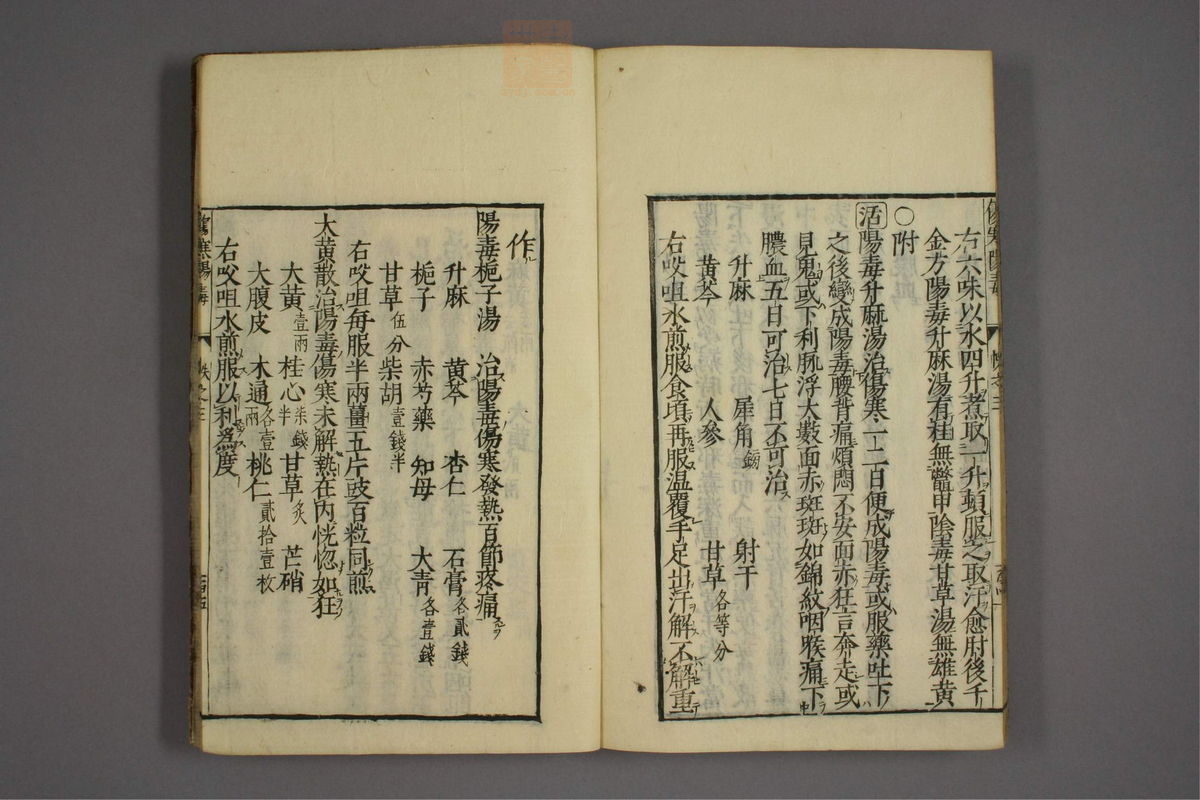 右六味以水四升煮取一升頓服之取汗愈肘後千
金方陽毒升麻湯有桂無鱉甲陰毒甘草湯無雄黃
○附
活陽毒升麻湯治傷寒一二日便成陽毒或服藥吐下
之後變成陽毒腰背痛煩悶不安面赤狂言奔走或
見鬼或下利脉浮大數面赤斑斑如錦紋咽喉痛下
膿血五日可治七日不可治
升麻 犀角鎊 射干
黃芩 人參 甘草各等分
右㕮咀水煎服食頃再服温覆手足出汗解不解重
作
陽毒梔子湯 治陽毒傷寒發熱百節疼痛
升麻 黃芩 杏仁 石膏各貳錢
梔子 赤芍藥 知母 大青各壹錢
甘草伍分 柴胡壹錢半
右㕮咀每服半兩薑五片豉百粒同煎
大黃散治陽毒傷寒未解熱在內恍惚如狂
大黃壹兩 桂心柒錢半 甘草炙 芒硝
大腹皮 木通各壹兩 桃仁貳拾壹枚
右㕮咀水煎服以利爲度
傷寒陽毒